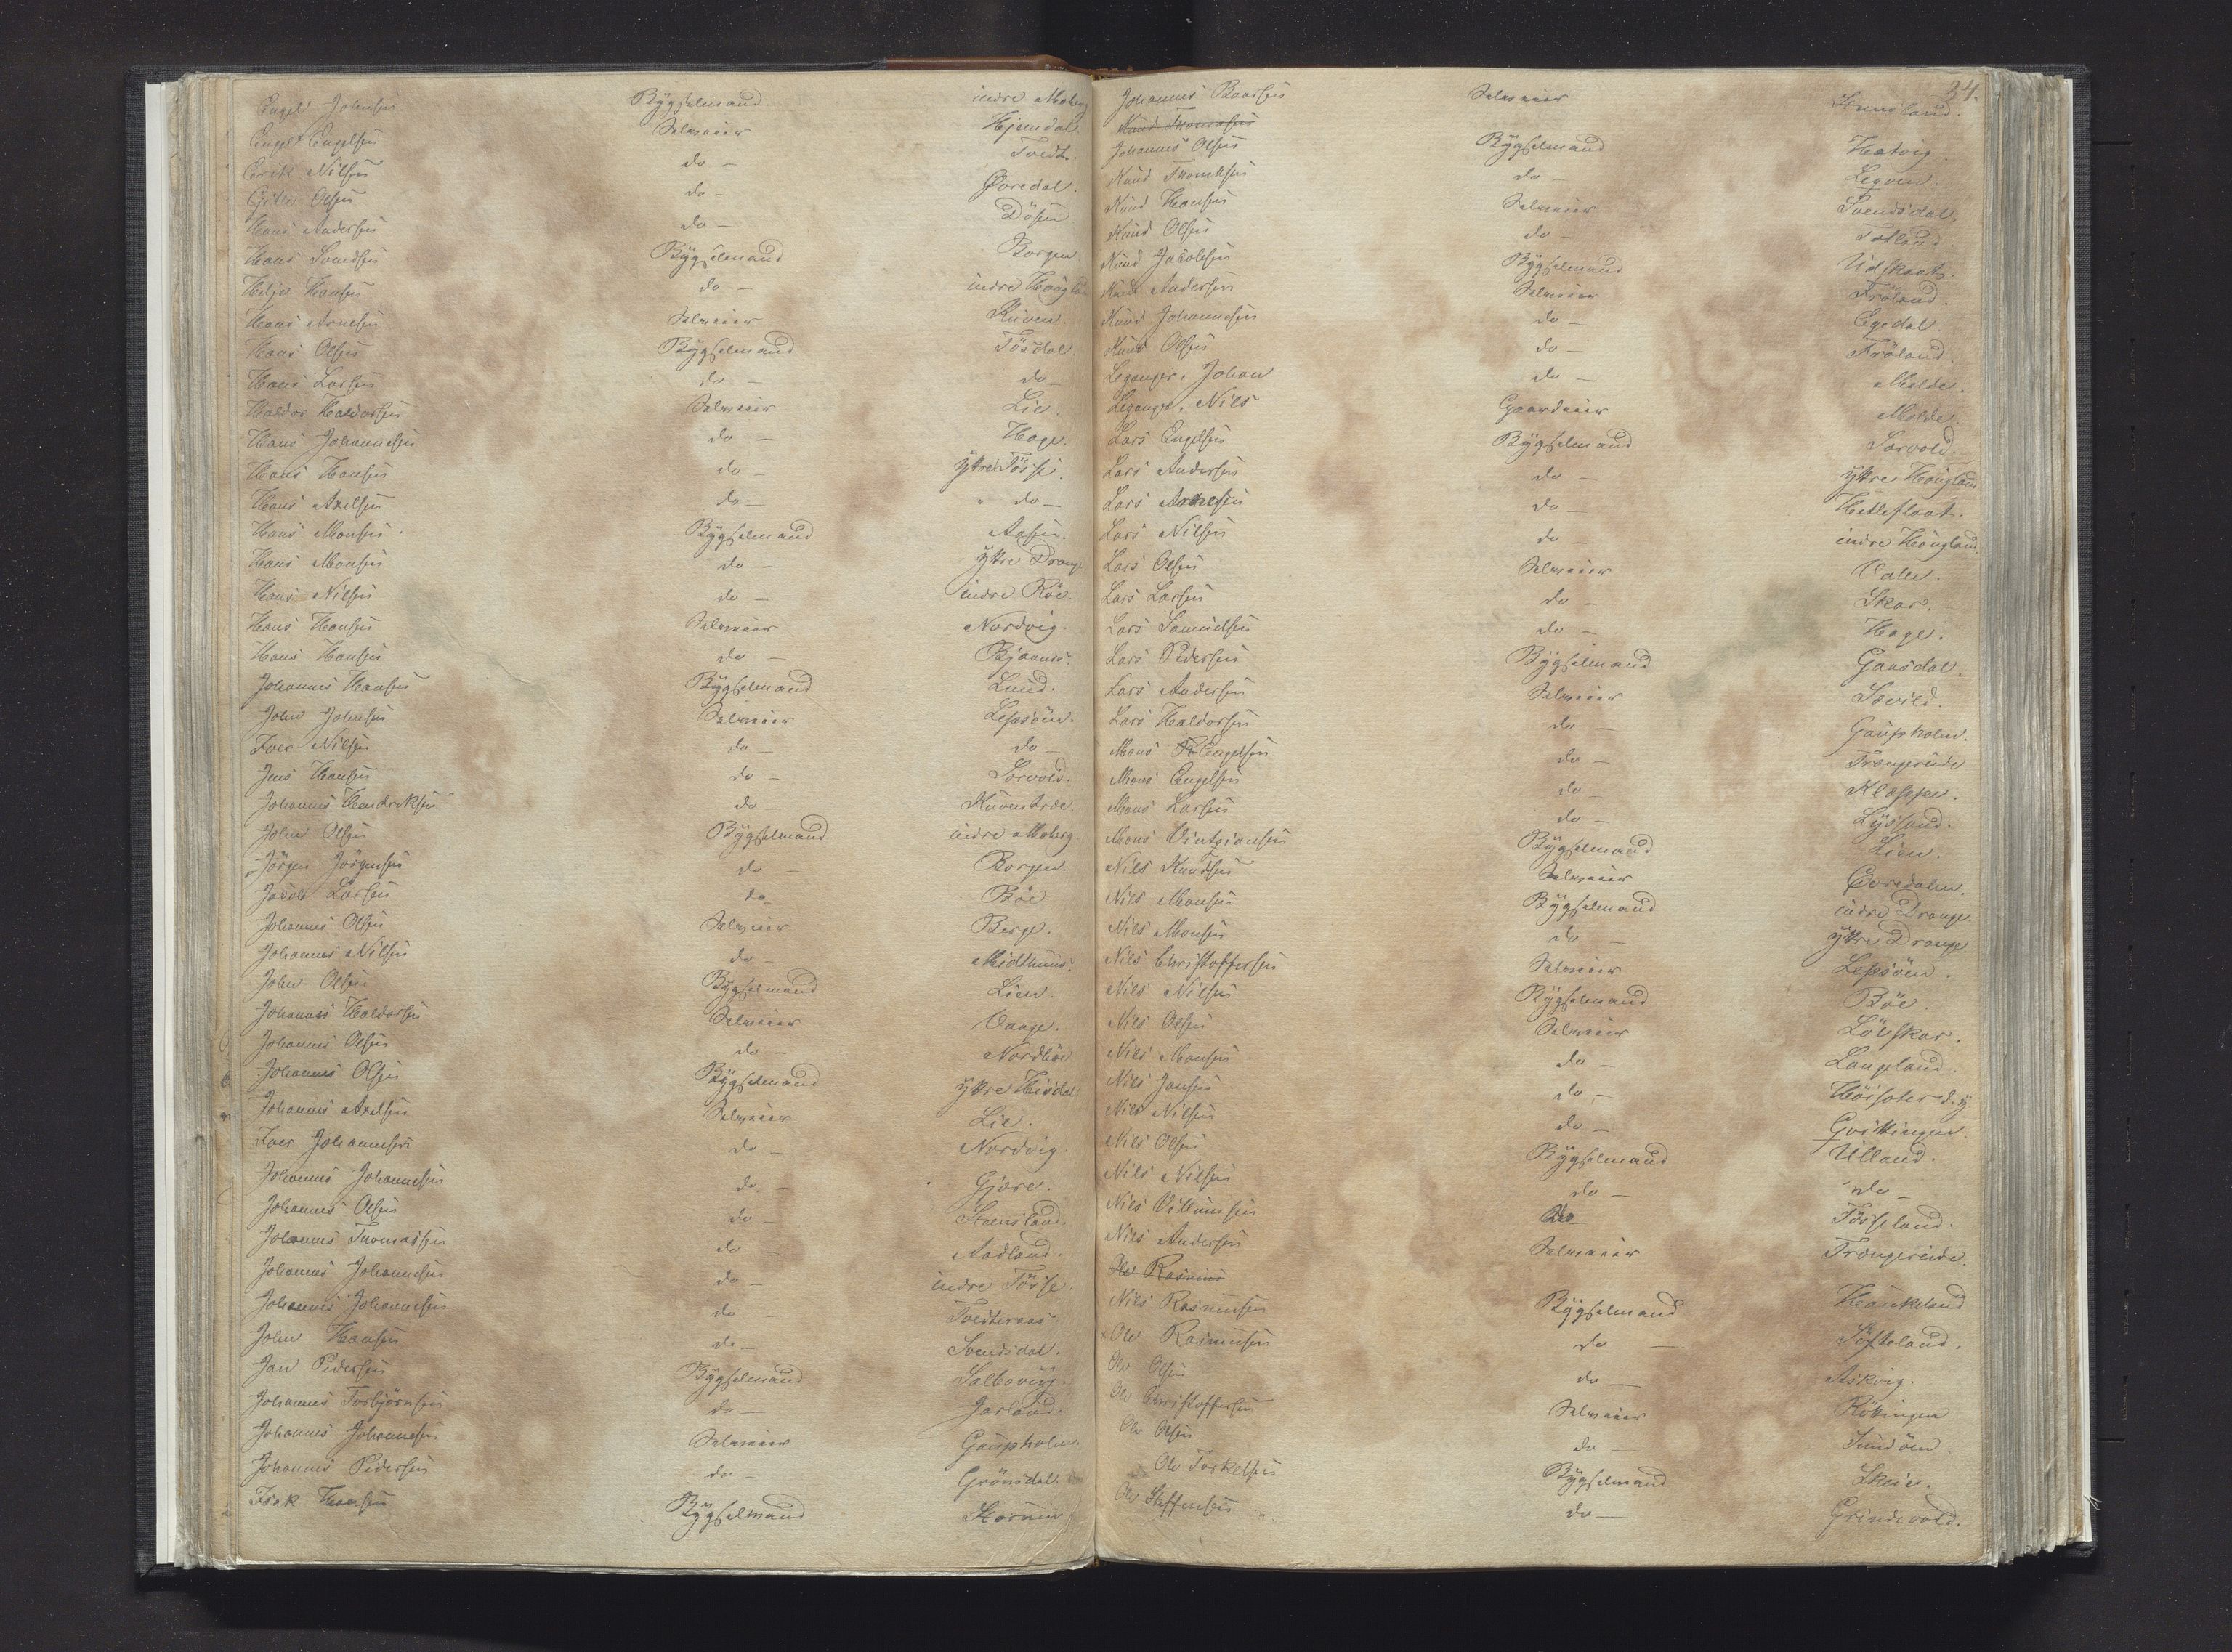 Engel Johnsen Bÿgselmand. indre Moberg
Engel Engelsen Selveier Hjeendal.
Erik Nilsen do – Tvedt.
Giter Olsen do – Øvredal.
Hans Andersen do – Dösen
Hans Svendsen Bÿgselmand Borgen
Helje Hansen do – indre Haugland
Hans Arnesen Selveier Kuven.
Hans Olsen Bÿgselmand Tösdal.
Hans Larsen do – do –
Haldor Haldorsen Selveier Lie.
Hans Johannesen do – Hage.
Hans Hansen do – ÿtre Tösse.
Hans Axelsen do – " do –
Hans Monsen Bÿgselmand Aasen.
Hans Monsen do – ÿtre Drange
Hans Nilsen do – indre Röe.
Hans Hansen Selveier Nordvig.
Hans Hansen do – Bjaanes.
Johannes Hansen Bÿgselmand Lund.
John Johnsen Selveier Lepsöen.
Iver Nilsen do – do –
Jens Hansen do – Sørvold.
Johannes Hendriksen do – Kuventræe.
John Olsen Bÿgselmand indre Moberg.
Jörgen Jörgensen do – Borgen.
Jacob Larsen do – Böe
Johannes Olsen Selveier Berge.
Johannes Nilsen do – Midthuus.
John Olsen Bÿgselmand Lien.
Johannes Haldorsen Selveier Vaage.
Johannes Olsen do – Nordböe
Johannes Olsen Bÿgselmand ÿtre Hisdal
Johannes Axelsen Selveier Lie.
Iver Johannesen do – Nordvig.
Johannes Johannesen do – Gjære.
Johannes Olsen do – Steensland.
Johannes Thomassen do – Aadland.
Johannes Johannesen do – indre Tösse.
Johannes Johannesen do – Tvedteraas.
John Hansen do – Svendsdal.
Jan Pedersen Bÿgselmand Salbovig.
Johannes Torbjörnsen do – Jarland.
Johannes Johannesen Selveier Gaupholm.
Johannes Pedersen do – Grönsdal.
Isak Hansen Bÿgselmand Skorven
24.
Johannes Baarsen Selveier Huusland.
Knud Thomasen
Johannes Olsen Bÿgselmand Hatvig.
Knud Thomasen do – Legven.
Knud Hansen Selveier Svendsdal.
Knud Olsen do – Tøtland.
Knud Jacobsen Bÿgselmand Udskaat.
Knud Andersen Selveier Fröland.
Knud Johannesen do – Egedal.
Knud Olsen do – Fröland.
Leganger, Johan do – Molde.
Leganger, Nils Gaardeier Molde.
Lars Engelsen Bÿgselmand Sørvold.
Lars Andersen do – ÿtre Haugland
Lars Arnesen do – Hetleflaat.
Lars Nilsen do – indre Haugland
Lars Olsen Selveier Valle.
Lars Larsen do – Skar.
Lars Samuelsen do – Hage.
Lars Pedersen Bÿgselmand Gaasdal.
Lars Andersen Selveier Sævild.
Lars Haldorsen do – Gaupholm.
Mons Engelsen do – Trængereide
Mons Engelsen do – Kleppe.
Mons Larsen do – Lÿssand.
Mons Vintziansen Bÿgselmand Lien.
Nils Knudsen Selveier Øvredalen.
Nils Monsen Bÿgselmand indre Drange.
Nils Monsen do – ÿtre Drange
Nils Christoffersen Selveier Lepsöen.
Nils Nilsen Bÿgselmand Böe.
Nils Olsen Selveier Lövskar.
Nils Monsen do – Langeland.
Nils Jansen do –
Nils Nilsen do – Gvittingen.
Nils Olsen Bÿgselmand Ulland.
Nils Nilsen do – do –
Nils Villumsen do Tösseland.
Nils Andersen Selveier Trængereide
Ole Rasmus
Nils Rasmusen Bÿgselmand Haukeland
Ole Rasmusen do – Söfteland.
Ole Olsen do – Askvig.
Ole Christoffersen Selveier Röttingen
Ole Olsen do – Sundöen.
Ole Torkelsen Bÿgselmand Skeie.
Ole Steffensen do – Grindevold.